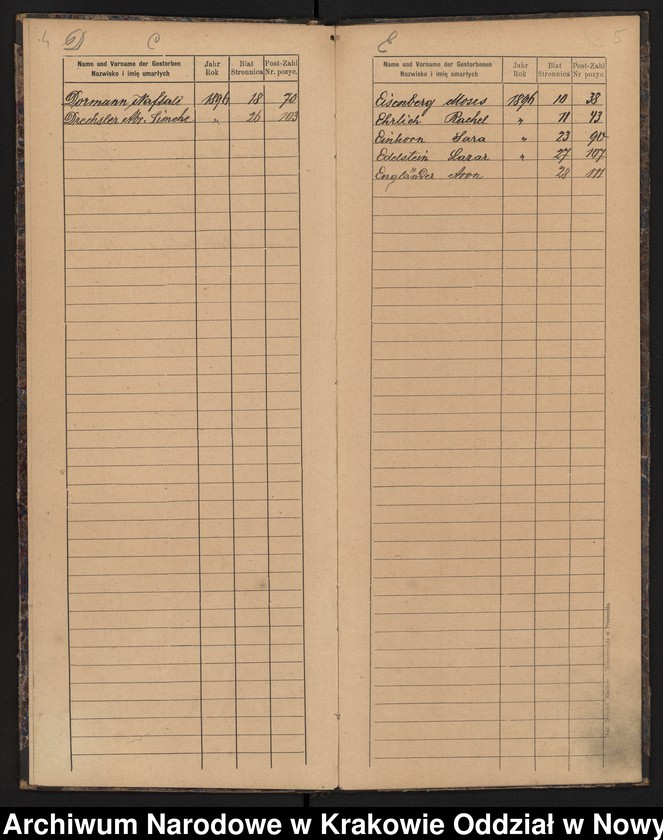 4 D C
Name und Vorname der Gestorben Jahr Blat Post-Zahl
Nazwisko i imię umarłych Rok Stronnica Nr. posyc.
Dormann Naftali 1896 18 70
Drechsler Abr. Simche " 26 103
E 5
Name und Vorname der Gestorbenen Jahr Blat Post-Zahl
Nazwisko i imię umarłych Rok Stronnica Nr posyc.
Eisenberg Moses 1896 10 38
Ehrlich Rachel " 11 43
Einhorn Sara " 23 90
Edelstein Lazar " 27 107
Engländer Aron 28 111
Archiwum Narodowe w Krakowie Oddział w Nowy